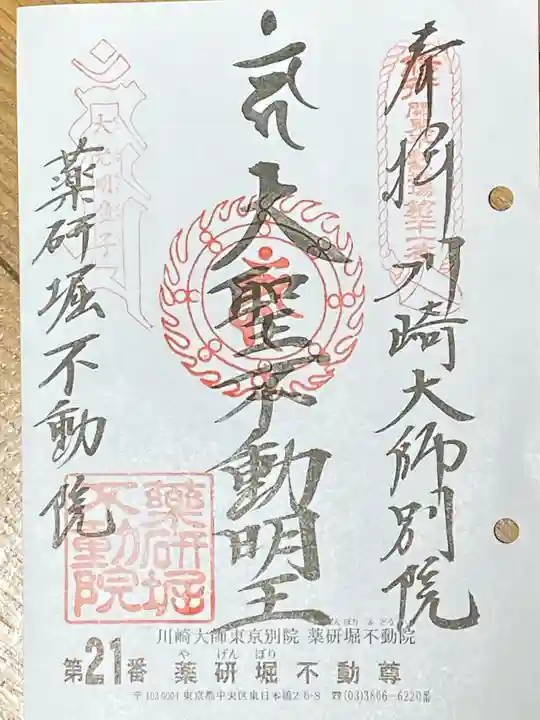 奉拝 川崎大師別院
大聖不動明王
薬研堀不動院
薬研堀
不動院
川崎大師東京別院 薬研堀不動院
や げん ぼり
第21番 薬研堀不動尊
〒103-0004 東京都中央区東日本橋2-6-8 ☎(03)3866-6220番